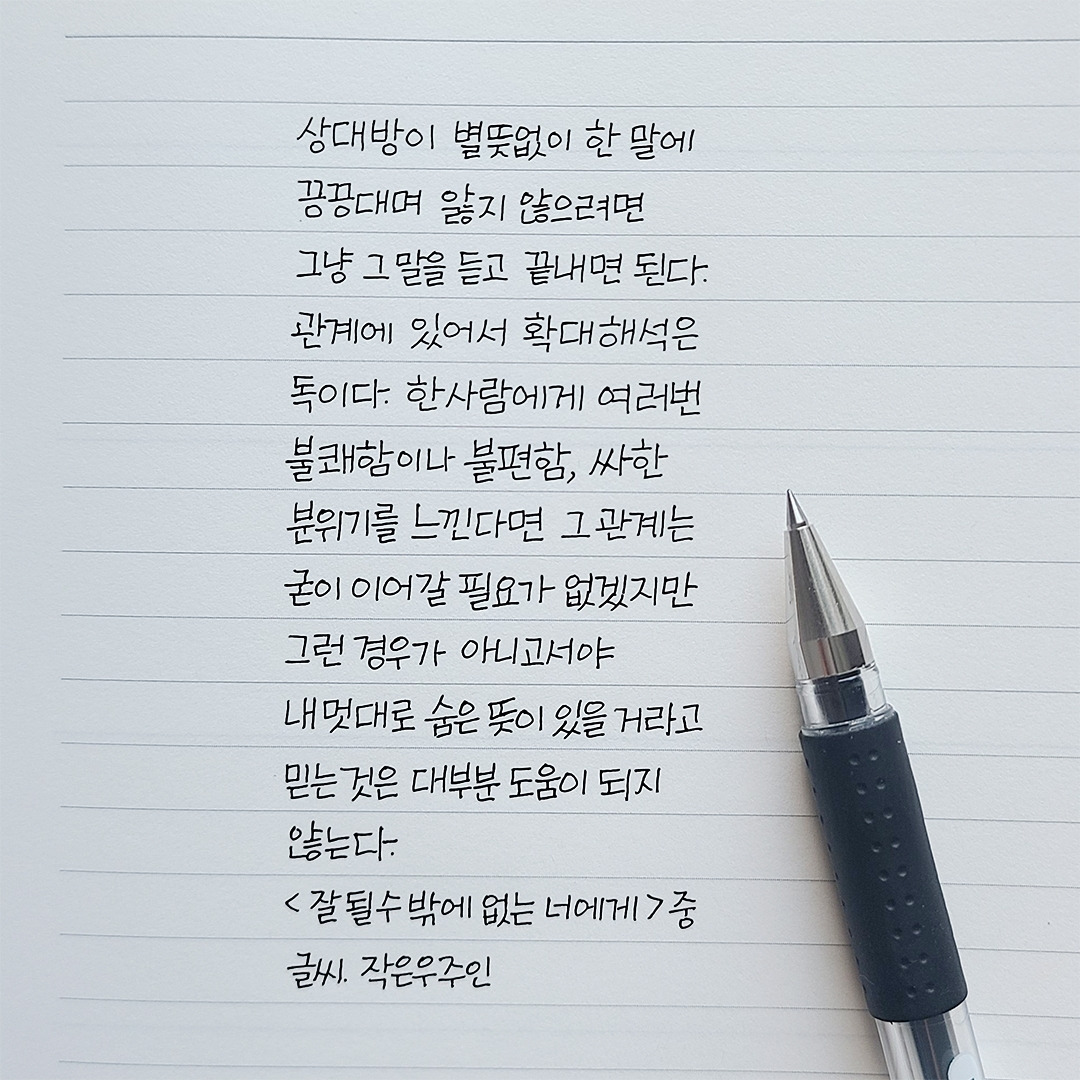 상대방이 별뜻없이 한 말에
끙끙대며 앓지 않으려면
그냥 그 말을 듣고 끝내면 된다.
관계에 있어서 확대해석은
독이다. 한사람에게 여러번
불쾌함이나 불편함, 싸한
분위기를 느낀다면 그 관계는
굳이 이어갈 필요가 없겠지만
그런 경우가 아니고서야
내멋대로 숨은 뜻이 있을 거라고
믿는 것은 대부분 도움이 되지
않는다.
<잘될수밖에 없는 너에게> 중
글씨. 작은우주인